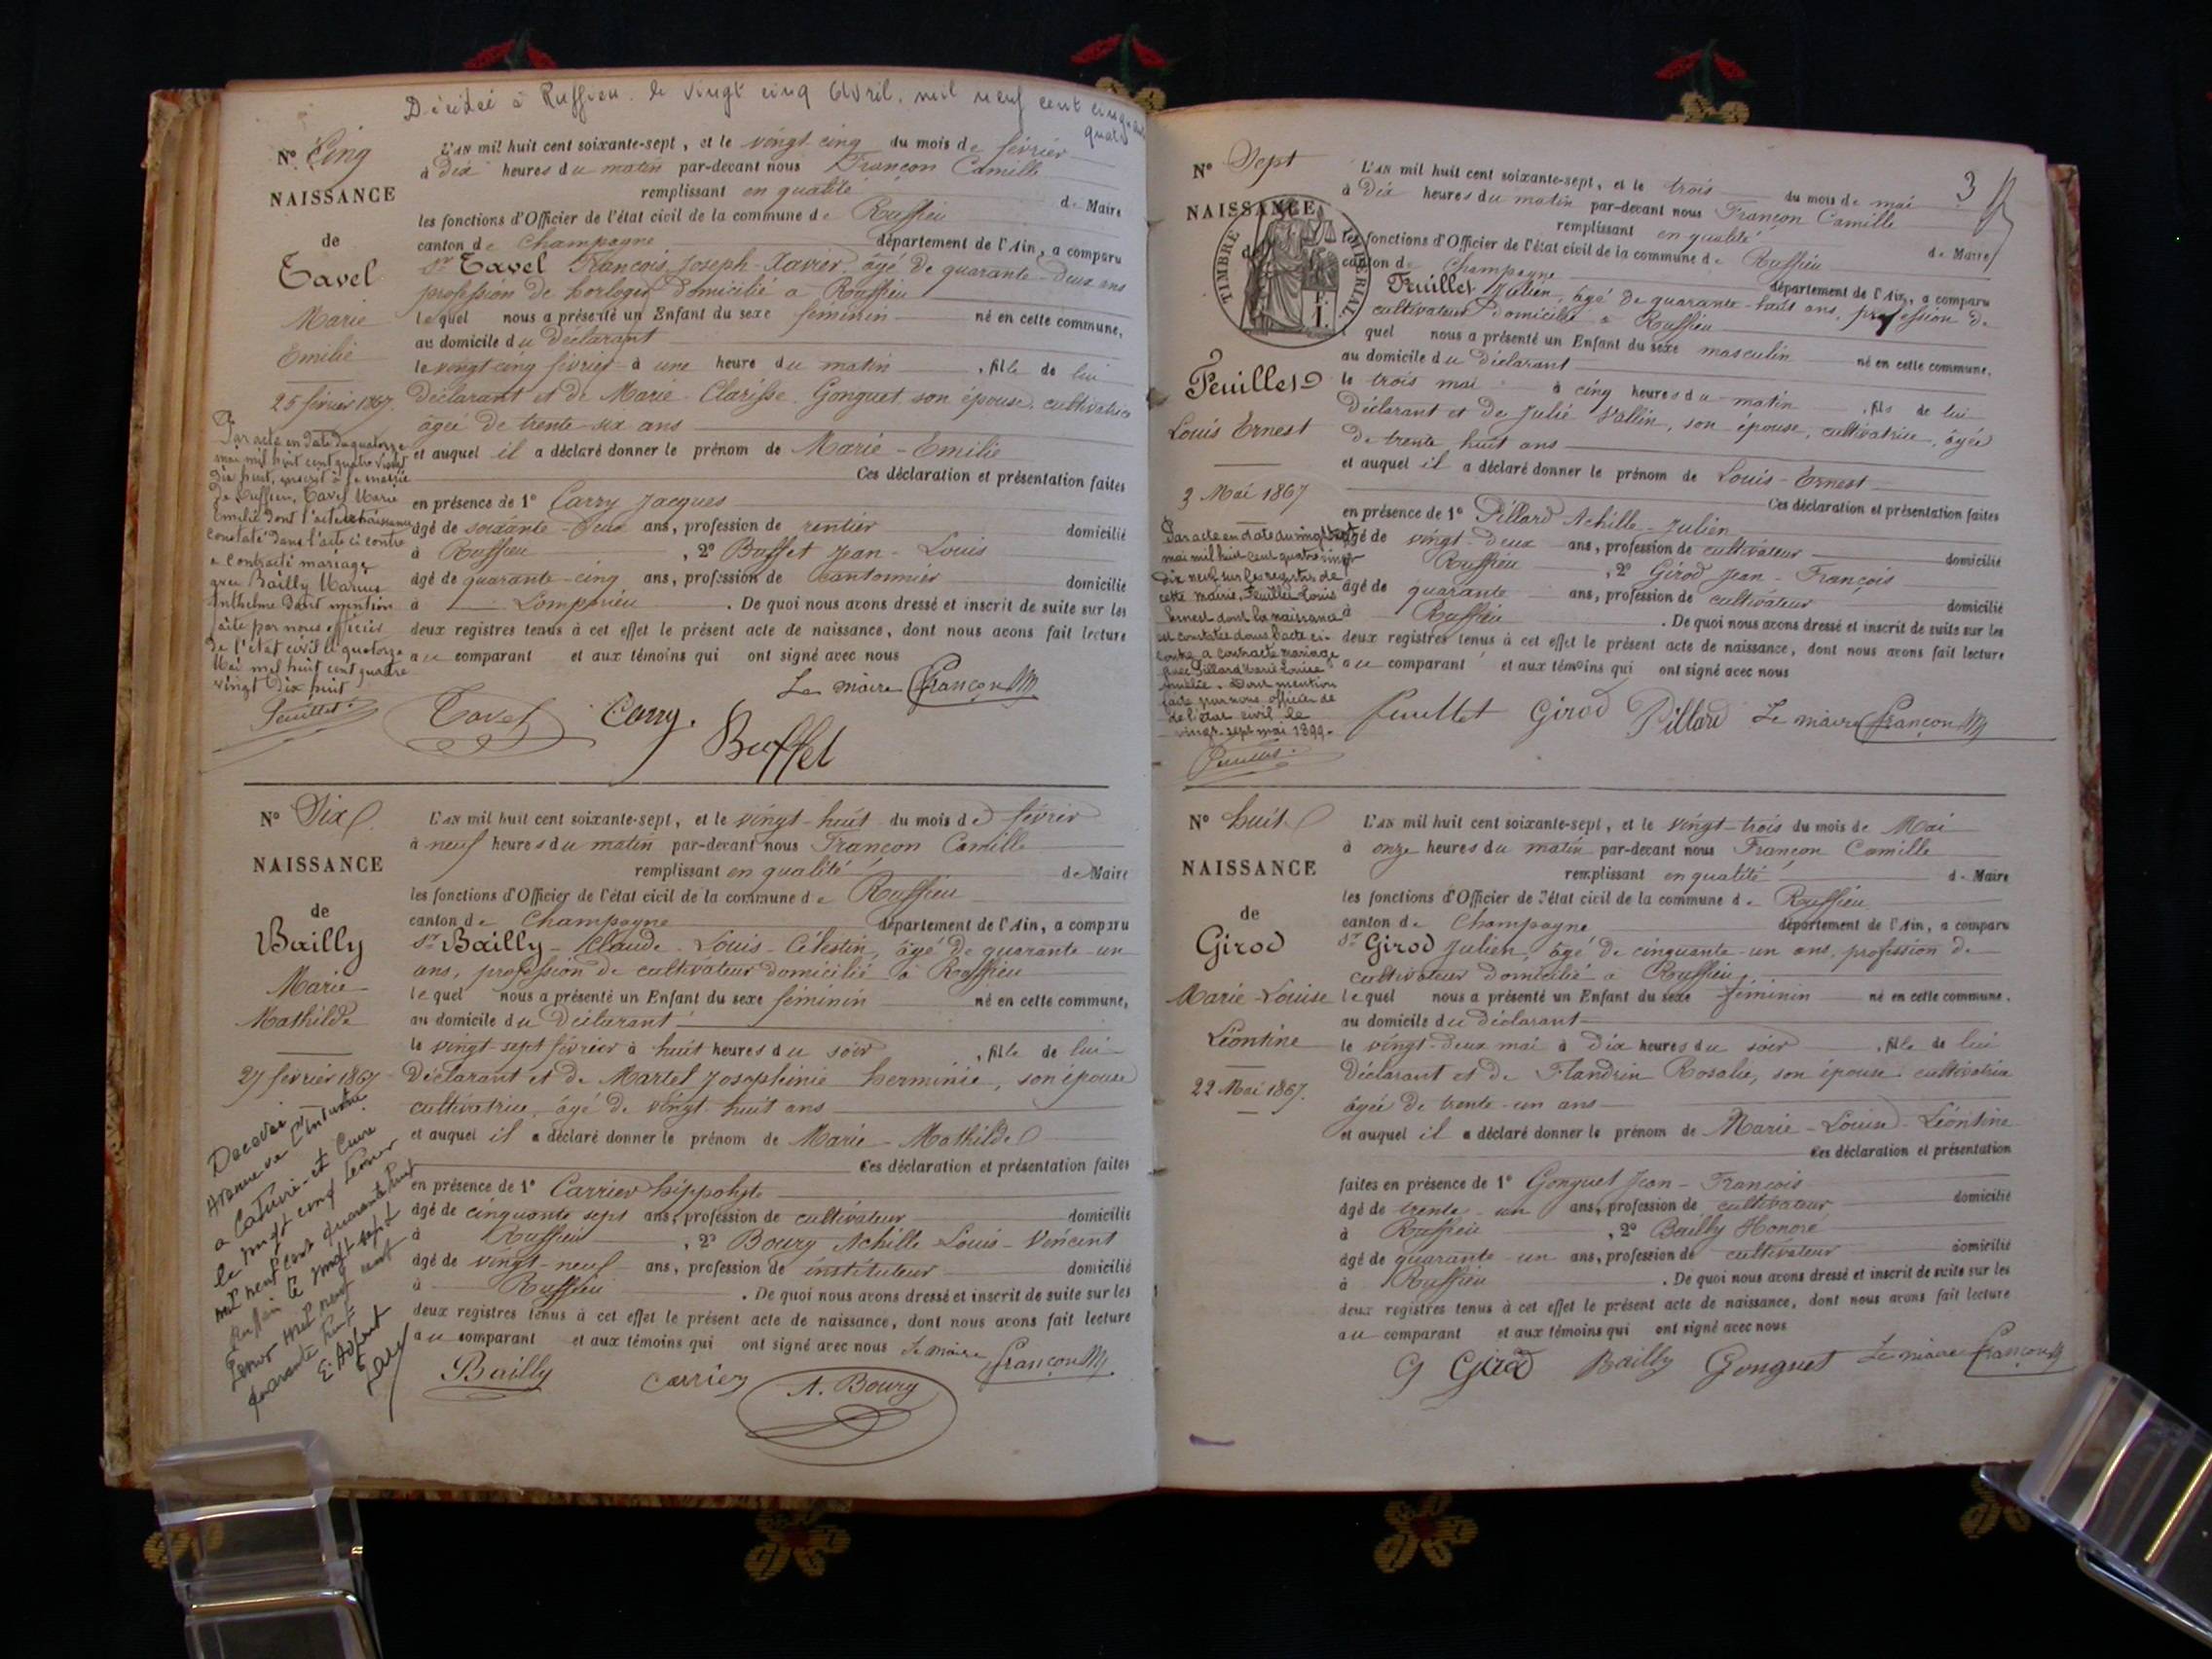 Décédée à Ruffieu le vingt cinq Avril mil neuf cent cinquante
quatre
N° Cinq
NAISSANCE
de
Tavel
Marie
Emilie
25 février 1867.
Par acte en date du quatorze
mai mil huit cent quatre vingt
dix huit, inscrit à la mairie
de Ruffieu, Tavel Marie
Emilie dont l'acte de naissance
constaté dans l'acte ci contre
a contracté mariage
avec Bailly Marius
Anthelme dont mention
faite par nous officier
de l'état civil le quatorze
Mai mil huit cent quatre
vingt dix huit
Feuillet
L'AN mil huit cent soixante-sept, et le vingt cinq du mois de février
à Dix heures du matin par-devant nous Françon Camille
remplissant en qualité de Maire
les fonctions d'Officier de l'état civil de la commune de Ruffieu
canton de Champagne département de l'Ain, a comparu
Sr Tavel François Joseph-Xavier, âgé de quarante-deux ans
profession de horloger domicilié à Ruffieu
lequel nous a présenté un Enfant du sexe féminin né en cette commune,
au domicile du déclarant
le vingt-cinq février à une heure du matin, fille de lui
déclarant et de Marie-Clarisse Gonguet son épouse, cultivatrice
âgée de trente-six ans
et auquel il a déclaré donner le prénom de Marie-Emilie
Ces déclaration et présentation faites
en présence de 1° Carry Jacques
âgé de soixante-deux ans, profession de rentier domicilié
à Ruffieu, 2° Buffet Jean-Louis
âgé de quarante-cinq ans, profession de cantonnier domicilié
à Lompnieu. De quoi nous avons dressé et inscrit de suite sur les
deux registres tenus à cet effet le présent acte de naissance, dont nous avons fait lecture
au comparant et aux témoins qui ont signé avec nous
Le maire Françon
Tavel Carry. Buffet
N° Six
NAISSANCE
de
Bailly
Marie-
Mathilde
27 février 1867
L'AN mil huit cent soixante-sept, et le vingt-huit du mois de février
à neuf heures du matin par-devant nous Françon Camille
remplissant en qualité de Maire
les fonctions d'Officier de l'état civil de la commune de Ruffieu
canton de Champagne département de l'Ain, a comparu
Sr Bailly-Claude-Louis-Célestin, âgé de quarante-un
ans, profession de cultivateur domicilié à Ruffieu
lequel nous a présenté un Enfant du sexe féminin né en cette commune,
au domicile du déclarant
le vingt-sept février à huit heures du soir, fille de lui
déclarant et de Martel Joséphinie herminie, son épouse
cultivatrice, âgé de vingt-huit ans
et auquel il a déclaré donner le prénom de Marie-Mathilde
Ces déclaration et présentation faites
en présence de 1° Carrier hippolyte
âgé de cinquante sept ans, profession de cultivateur domicilié
à Ruffieu, 2° Boury Achille Louis-Vincent
âgé de vingt-neuf ans, profession de instituteur domicilié
à Ruffieu. De quoi nous avons dressé et inscrit de suite sur les
deux registres tenus à cet effet le présent acte de naissance, dont nous avons fait lecture
au comparant et aux témoins qui ont signé avec nous Le maire Françon
Bailly Carrier A. Boury
Décédée
à Caluire-et-Cuire
le vingt cinq
mil neuf cent quarante huit
le vingt sept
mil neuf cent
quarante huit
3
N° Sept
NAISSANCE
de
TIMBRE IMPÉRIAL
Feuillet
Louis Ernest
3 Mai 1867
Par acte en date du vingt sept
mai mil huit cent quatre vingt
dix neuf sur les registres de
cette mairie, Feuillet Louis
Ernest dont la naissance
est constatée dans l'acte ci-
contre a contracté mariage
avec Pillard Marie Louise
Amélie. Dont mention
faite par nous officier de
de l'état civil le
vingt-sept mai 1899.
Feuillet
L'AN mil huit cent soixante-sept, et le trois du mois de mai
à Dix heures du matin par-devant nous Françon Camille
remplissant en qualité de Maire
les fonctions d'Officier de l'état civil de la commune de Ruffieu
canton de Champagne département de l'Ain, a comparu
Feuillet Julien, âgé de quarante-huit ans, profession de
cultivateur domicilié à Ruffieu
quel nous a présenté un Enfant du sexe masculin né en cette commune,
au domicile du déclarant
le trois mai à cinq heures du matin, fils de lui
déclarant et de Julie Vallin, son épouse, cultivatrice, âgée
de trente huit ans
et auquel il a déclaré donner le prénom de Louis-Ernest
Ces déclaration et présentation faites
en présence de 1° Pillard Achille-Julien
âgé de vingt-deux ans, profession de cultivateur domicilié
Ruffieu, 2° Girod Jean-François
âgé de quarante ans, profession de cultivateur domicilié
à Ruffieu. De quoi nous avons dressé et inscrit de suite sur les
deux registres tenus à cet effet le présent acte de naissance, dont nous avons fait lecture
au comparant et aux témoins qui ont signé avec nous
feuillet Girod Pillard Le maire Françon
N° huit
NAISSANCE
de
Girod
Marie-Louise
Léontine
22 Mai 1867.
L'AN mil huit cent soixante-sept, et le vingt-trois du mois de Mai
à onze heures du matin par-devant nous Françon Camille
remplissant en qualité de Maire
les fonctions d'Officier de l'état civil de la commune de Ruffieu
canton de Champagne département de l'Ain, a comparu
Sr Girod Julien, âgé de cinquante-un ans, profession de
cultivateur domicilié à Ruffieu
lequel nous a présenté un Enfant du sexe féminin né en cette commune,
au domicile du déclarant
le vingt-deux mai à dix heures du soir, fille de lui
déclarant et de Flandrin Rosalie, son épouse cultivatrice
âgée de trente-un ans
et auquel il a déclaré donner le prénom de Marie-Louise-Léontine
Ces déclaration et présentation
faites en présence de 1° Gonguet Jean-François
âgé de trente-un ans, profession de cultivateur domicilié
à Ruffieu, 2° Bailly Honoré
âgé de quarante-un ans, profession de cultivateur domicilié
à Ruffieu. De quoi nous avons dressé et inscrit de suite sur les
deux registres tenus à cet effet le présent acte de naissance, dont nous avons fait lecture
au comparant et aux témoins qui ont signé avec nous
Girod Bailly Gonguet Le maire Françon